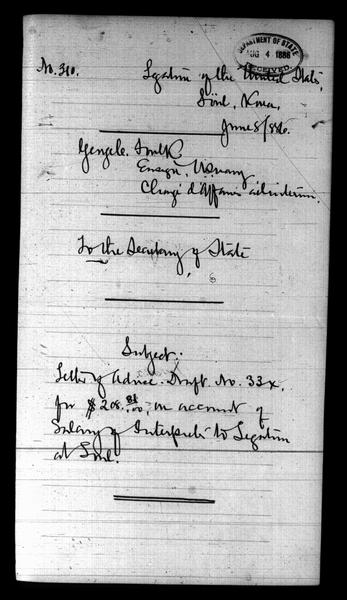 DEPARTMENT OF STATE
AUG 4 1886
RECEIVED
No. 310.
Legation of the United States,
Söul, Korea,
June 8/886.
George C. Foulk
Ensign, USNavy
Chargé d'Affaires ad interim.
To the Secretary of State
Subject.
Letter of Advice. Draft No. 33
for $208. 81/100, on account of
Salary of Interpreter to Legation
at Söul.